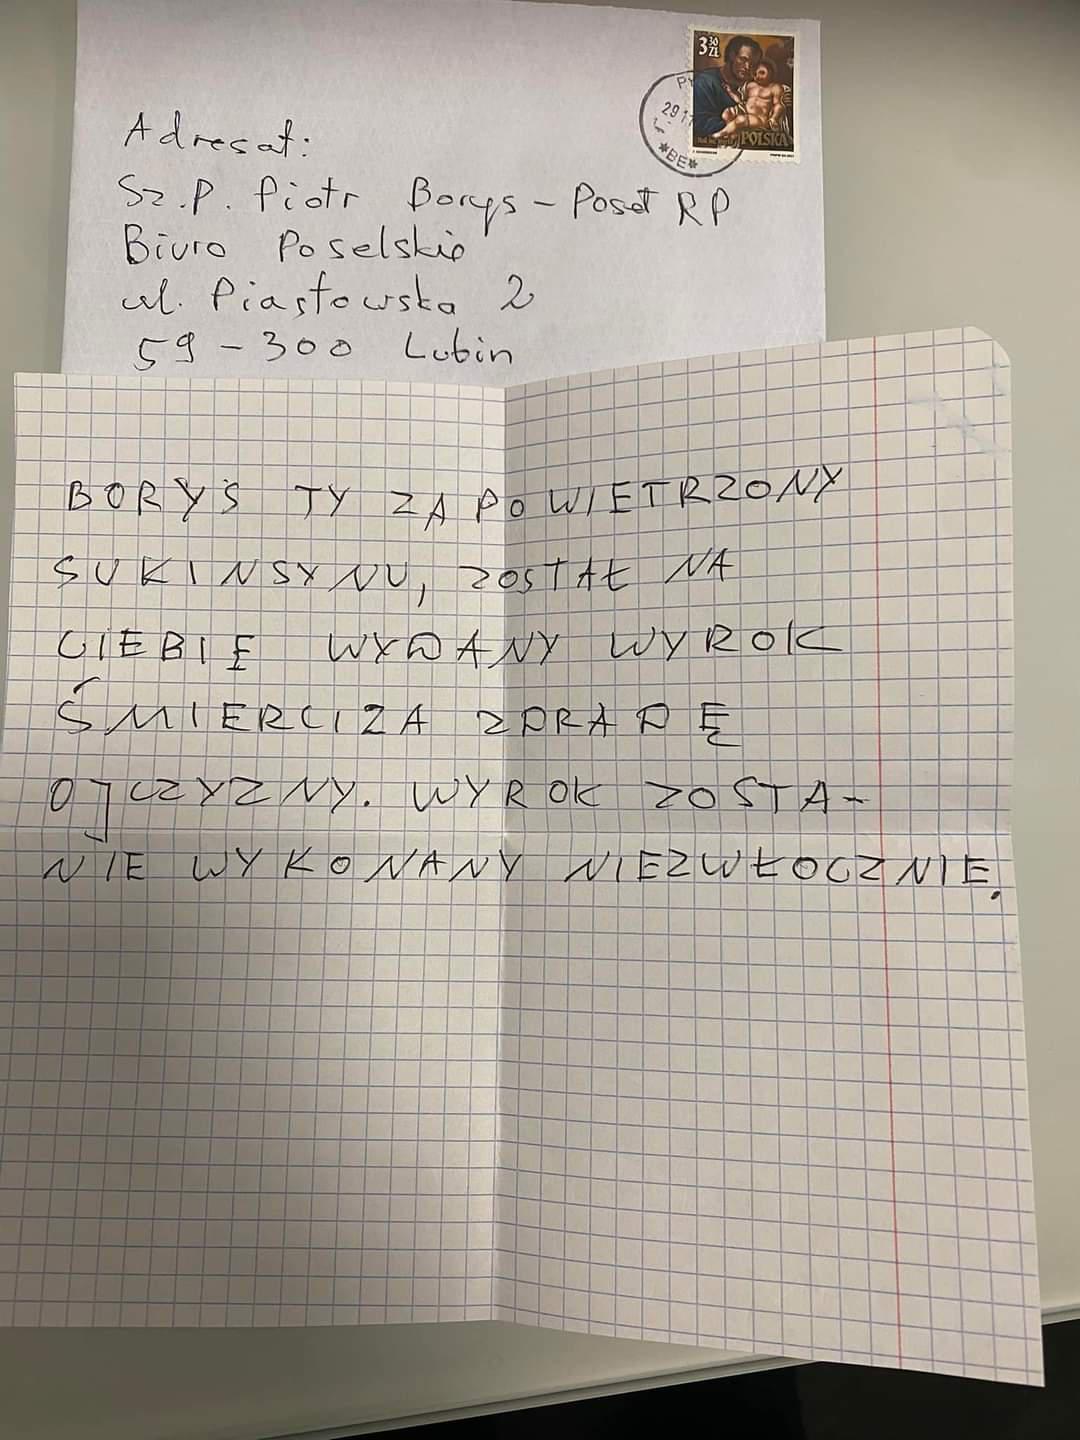 3 30 ZŁ
29 11
*BE*
POLSKA
Adresat:
Sz.P. Piotr Borys - Poseł RP
Biuro Poselskie
ul. Piastowska 2
59-300 Lubin
BORYŚ TY ZAPOWIETRZONY
SUKINSYNU, ZOSTAŁ NA
CIEBIĘ WYDANY WYROK
ŚMIERCI ZA ZDRADĘ
OJCZYZNY. WYROK ZOSTA-
NIE WYKONANY NIEZWŁOCZNIE.